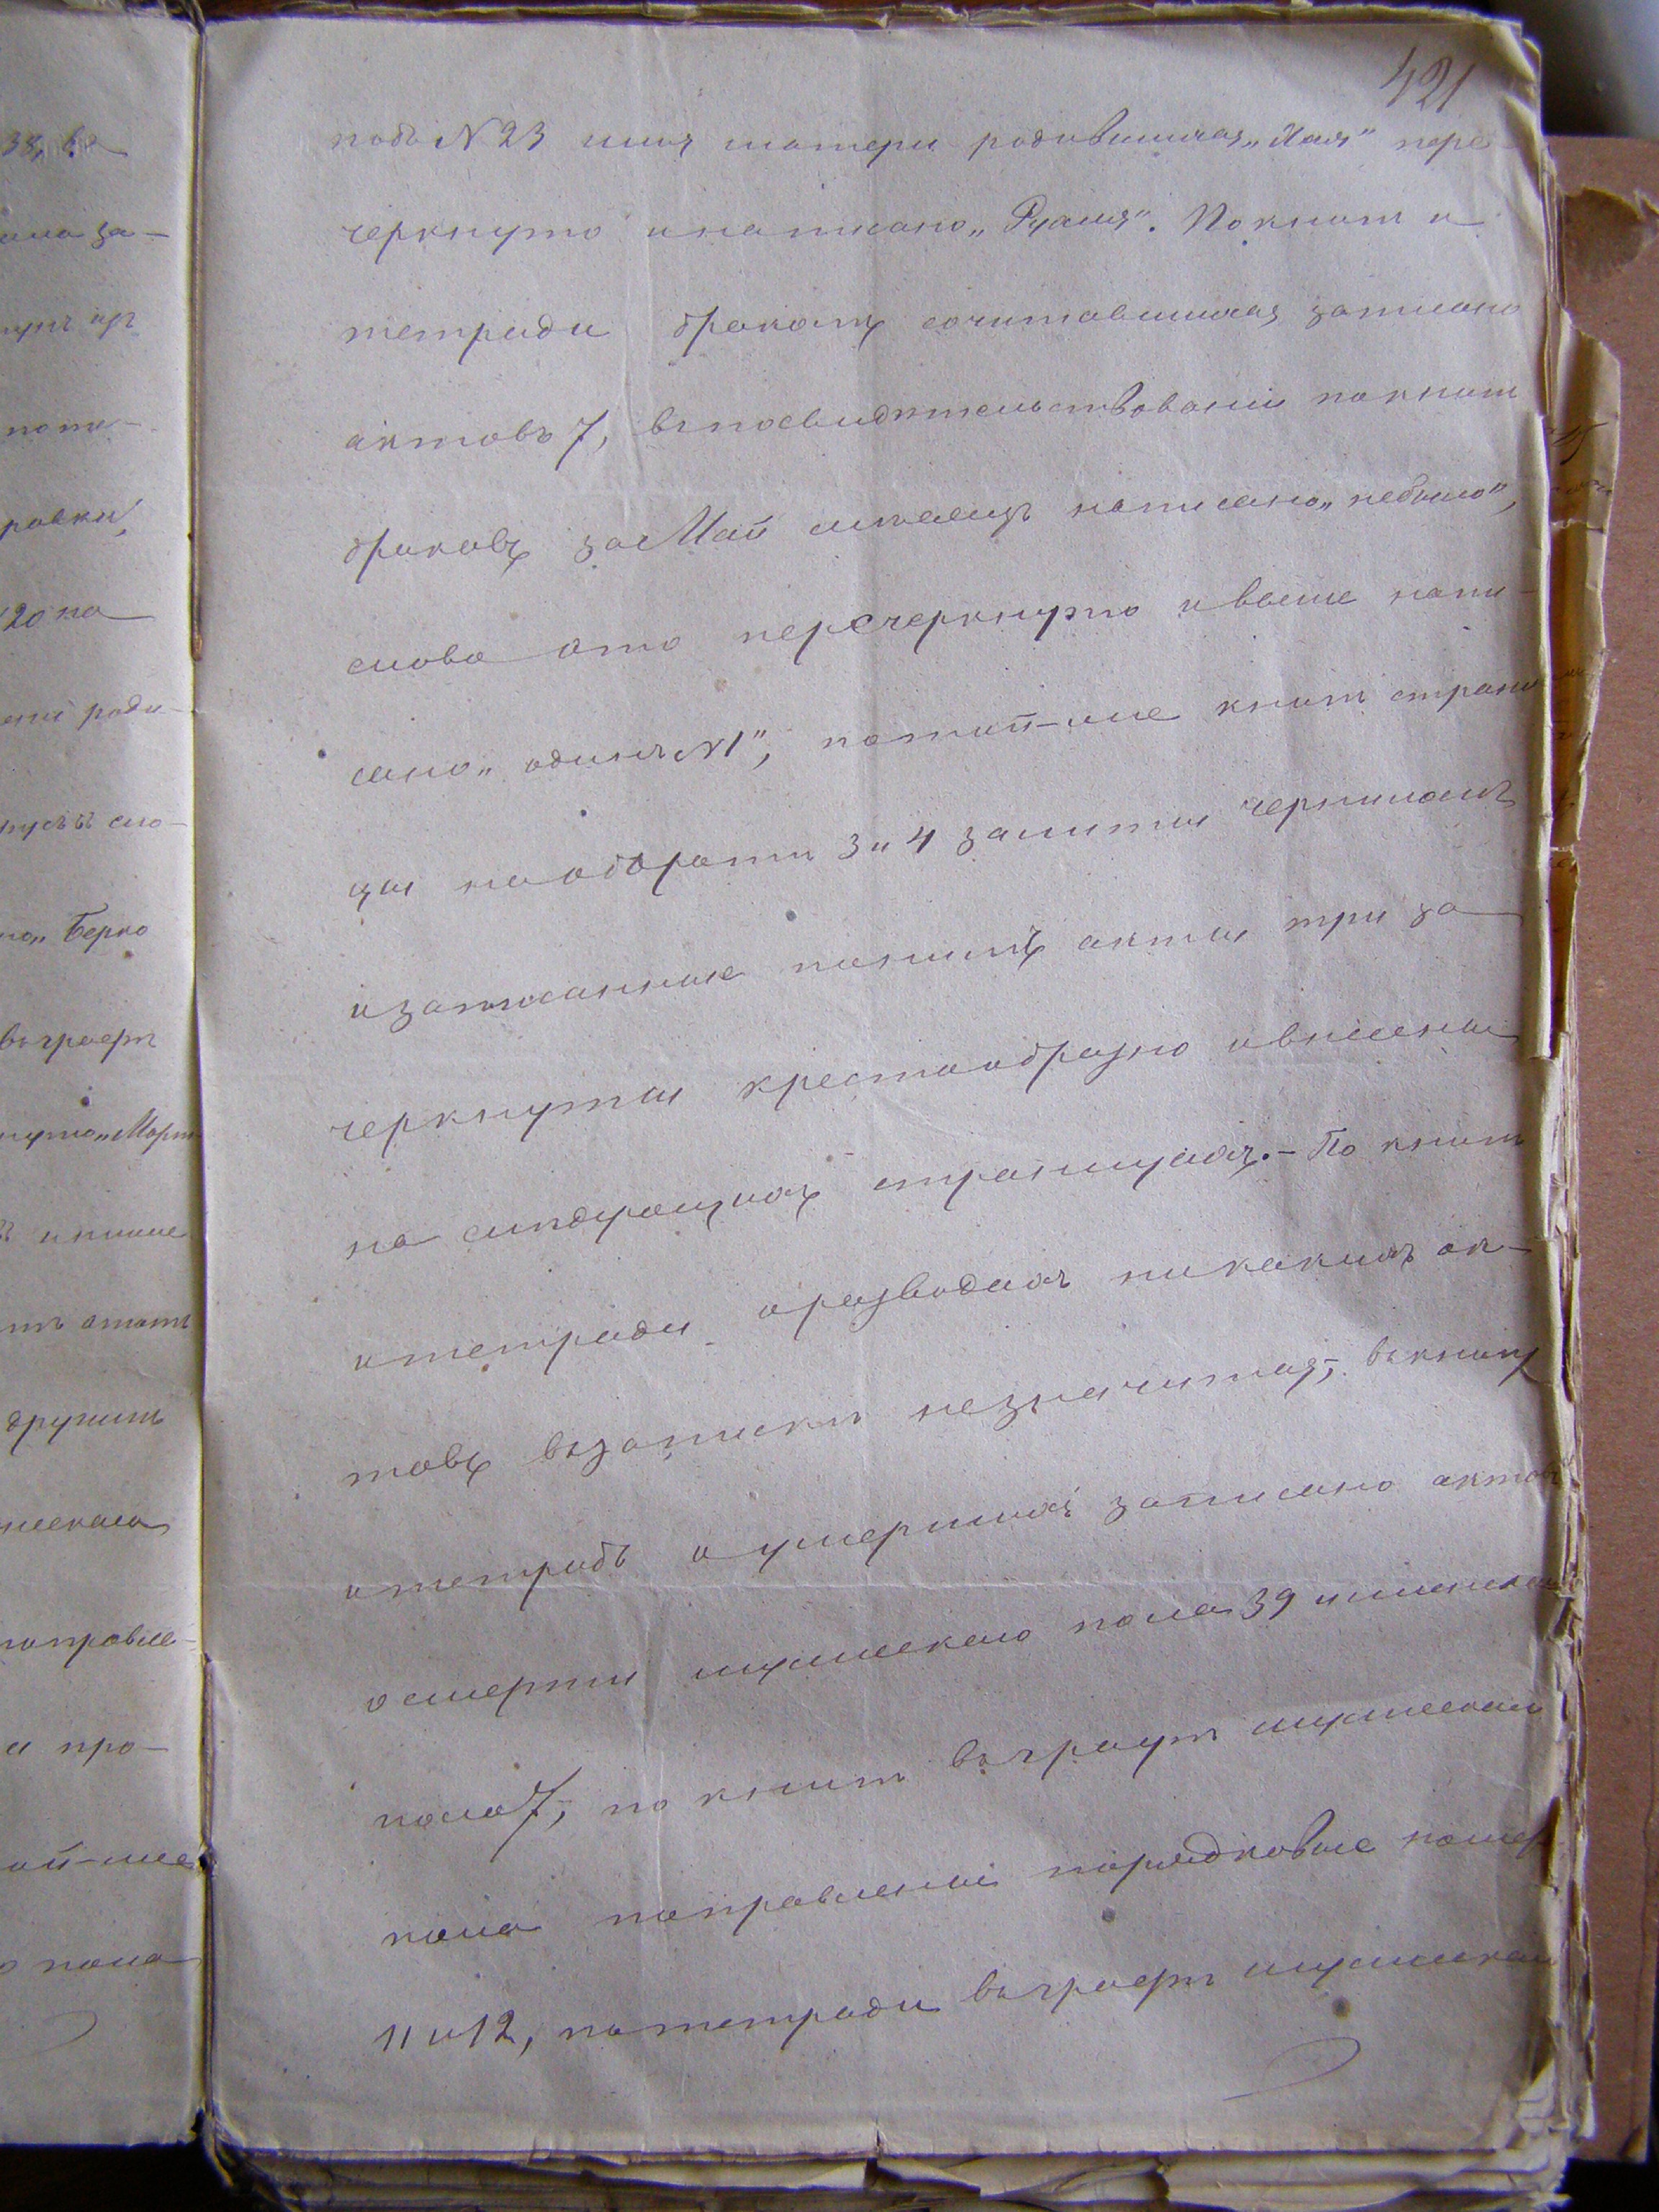 421
подъ N 23 имя матери родившихся „Хая" пере-
черкнуто и написано „Рухля". По книгѣ и
тетради бракомъ сочитавшихся записано
актовъ 7, въ посвидѣтельствованіи по книгѣ
браковъ за Май мѣсяцъ написано „небыло",
слово это перечеркнуто и выше напи-
сано „одинъ N 1", по той-же книгѣ страни-
цы на оборотѣ 3 и 4 залиты чернилами
и записанные по нимъ акты три за-
черкнуты крестообразно и внесены
на слѣдующихъ страницахъ. - По книгѣ
и тетради о разводахъ никакихъ ак-
товъ въ запискѣ незначится; въ книгу
и тетрадь о умершихъ записано актовъ
о смерти мужескаго пола 39 и женскаго
пола 7, по книгѣ въ графѣ мужескаго
пола поправлены порядковые номера
11 и 12, по тетради въ графѣ мужескаго
38,
за-
ровки,
20 на
роди-
сло-
„Берко
въ графѣ
другимъ
поправле-
про-
ой-же
пола